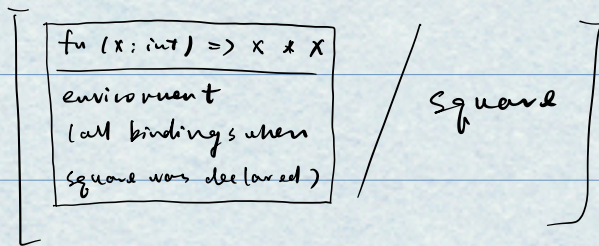 fn (x : int) => x * x
environment
(all bindings when
square was declared)
square